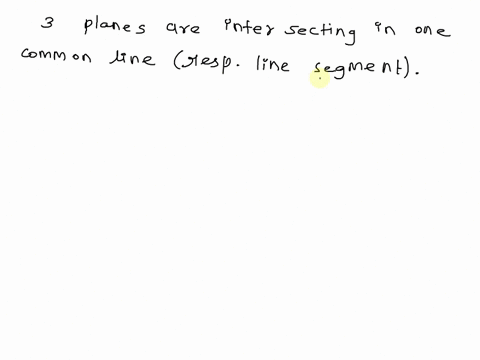 3 planes are inter secting in one
common line (resp. line segment).